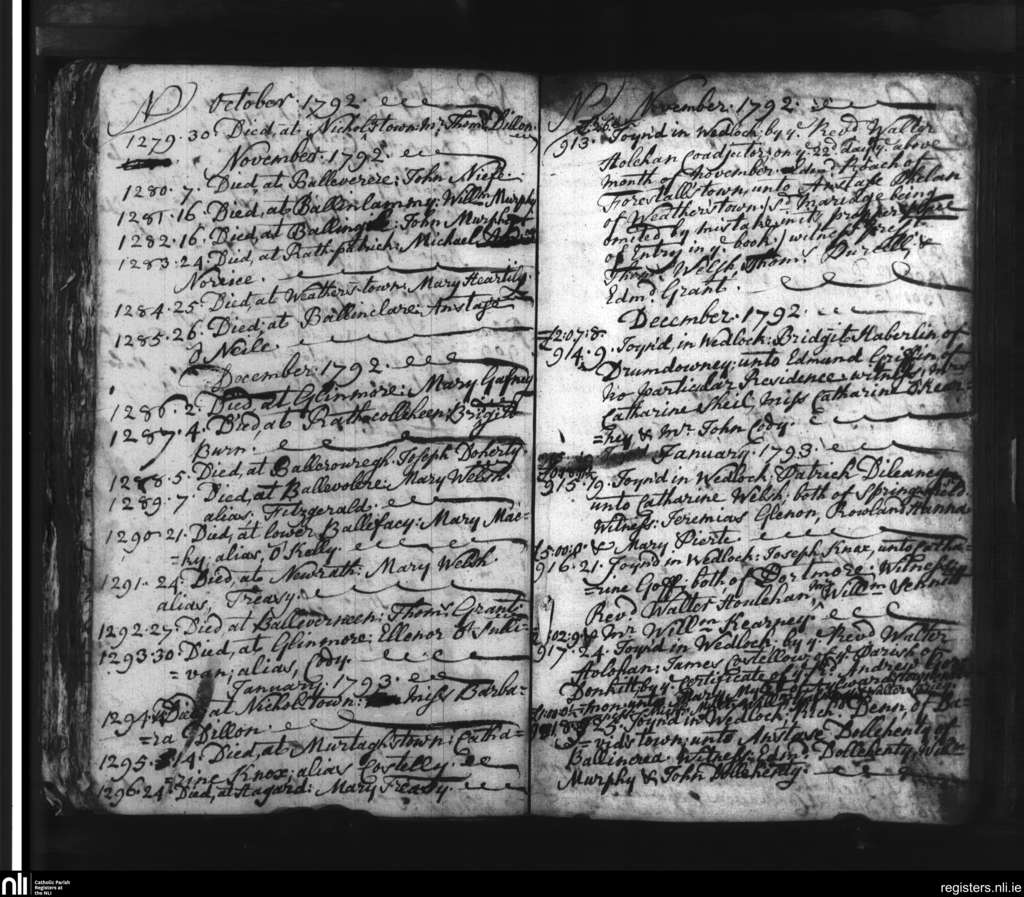 N October. 1792.
1279. 30. Died, at Nicholstown: Mr. Thoms. Dillon.
November. 1792.
1280. 7. Died, at Ballevereze: John Niese.
1281. 16. Died, at Ballinlammy: Willm. Murphy
1282. 16. Died, at Ballingile: John Murphy
1283. 24. Died, at Rathpatrick: Michael
Noreiee.
1284. 25. Died, at Weatherstown: Mary Heartily.
1285. 26. Died; at Ballinclare: Anstase
O Neile.
December. 1792.
1286. 2. Died, at Glinmore: Mary Gafney
1287. 4. Died, at Rathcolleheen: Bridgitt
Burn.
1288. 5. Died, at Ballerouregh: Joseph Doherty
1289. 7. Died, at Ballevolere: Mary Welsh.
alias, Fitzgerald.
1290. 21. Died, at lower Ballefacy: Mary Mac=
=hy, alias, O'Kelly.
1291. 24. Died, at Newrath: Mary Welsh.
alias, Treasy.
1292. 27. Died at Balleverneen: Thoms. Grant.
1293. 30. Died, at Glinmore: Ellenor O Sulli=
=van; alias, Cody.
January. 1793.
1294. Died, at Nicholstown: Miss Barba=
=ra Dillon.
1295. 14. Died, at Murtaghstown: Catha=
=rine Knox; alias Costelly.
1296. 24. Died, at Hagard: Mary Treasy.
N November. 1792.
913. Joyn'd in Wedlock: by ye. Revd. Walter
Holehan Coadjutor; on ye. 22d. day ye. above
month of November. Edmd. Roach of
Forestallstown, unto Anstase Phelan
of Weatherstown. (Sd. Maridge being
omited by mistake, in its proper
of Entry in ye. book.) witness pres:
Thoms. Welsh, Thoms. Durelle, &
Edmd. Grant.
December. 1792.
£2:07:8.
914. 9. Joyn'd, in Wedlock: Bridgit Haberlin of
Drumdowney; unto Edmund Griffin of
no particular Residence. witness, Mrs.
Catharine Sheil, miss Catharine OKear=
=hey & Mr. John Cody.
January. 1793.
915. 19. Joyn'd in Wedlock: Patrick Dileaney
unto Catharine Welsh; both of Springfield.
Witness: Jeremias Glenon, Rowland Hanna
& Mary Pierte.
916. 21. Joyn'd in Wedlock: Joseph Knox, unto Catha=
=rine Goff: both, of Portmore. Witness, ye
Revd. Walter Houlehan, Mr. Willm. Sehnitt
& Mr. Willm. Kearney.
917. 24. Joyn'd in Wedlock: by ye. Revd. Walter
Holohan: James Costellow of ye. Parish of
Donkitt, by ye. Certificate of
25. Joyn'd in Wedlock, Patck. Denn, of Da=
=vidstown; unto Anstase Dollehenty of
Ballincrea. Witness: Edmd. Dollehenty, Willm.
Murphy & John Dollehenty.
nli
Catholic Parish
Registers at
the NLI
registers.nli.ie